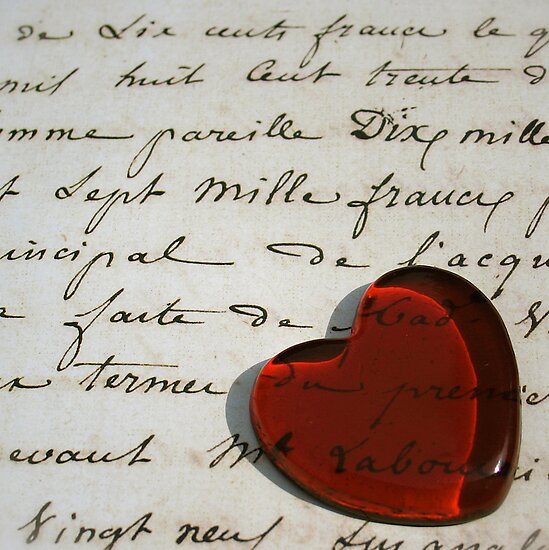 de Six cents francs le
mil huit Cent trente d
omme pareille Dix mille
t Sept Mille francs p
incipal de l'acqu
faite de
termes du premie
evant Me
Vingt neuf